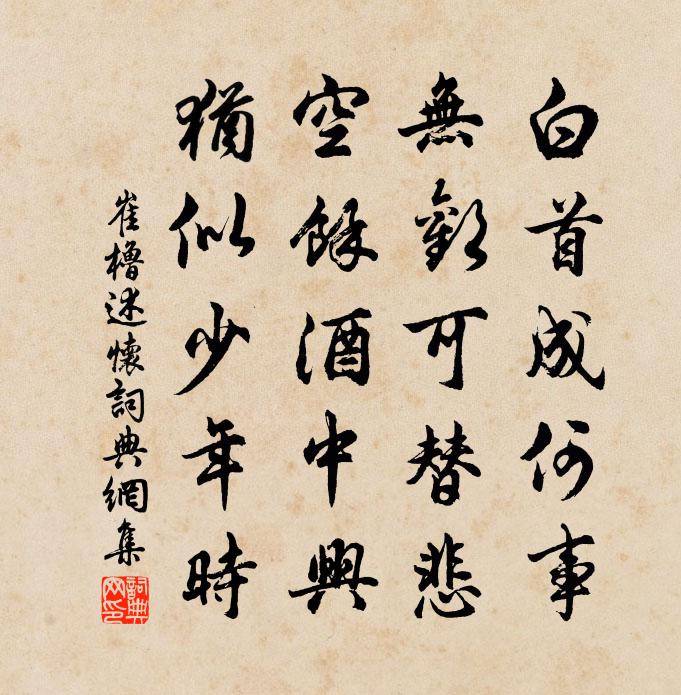 白首成何事
無歡可替悲
空餘酒中興
猶似少年時
崔櫓述懷詞典網集
詞典網印